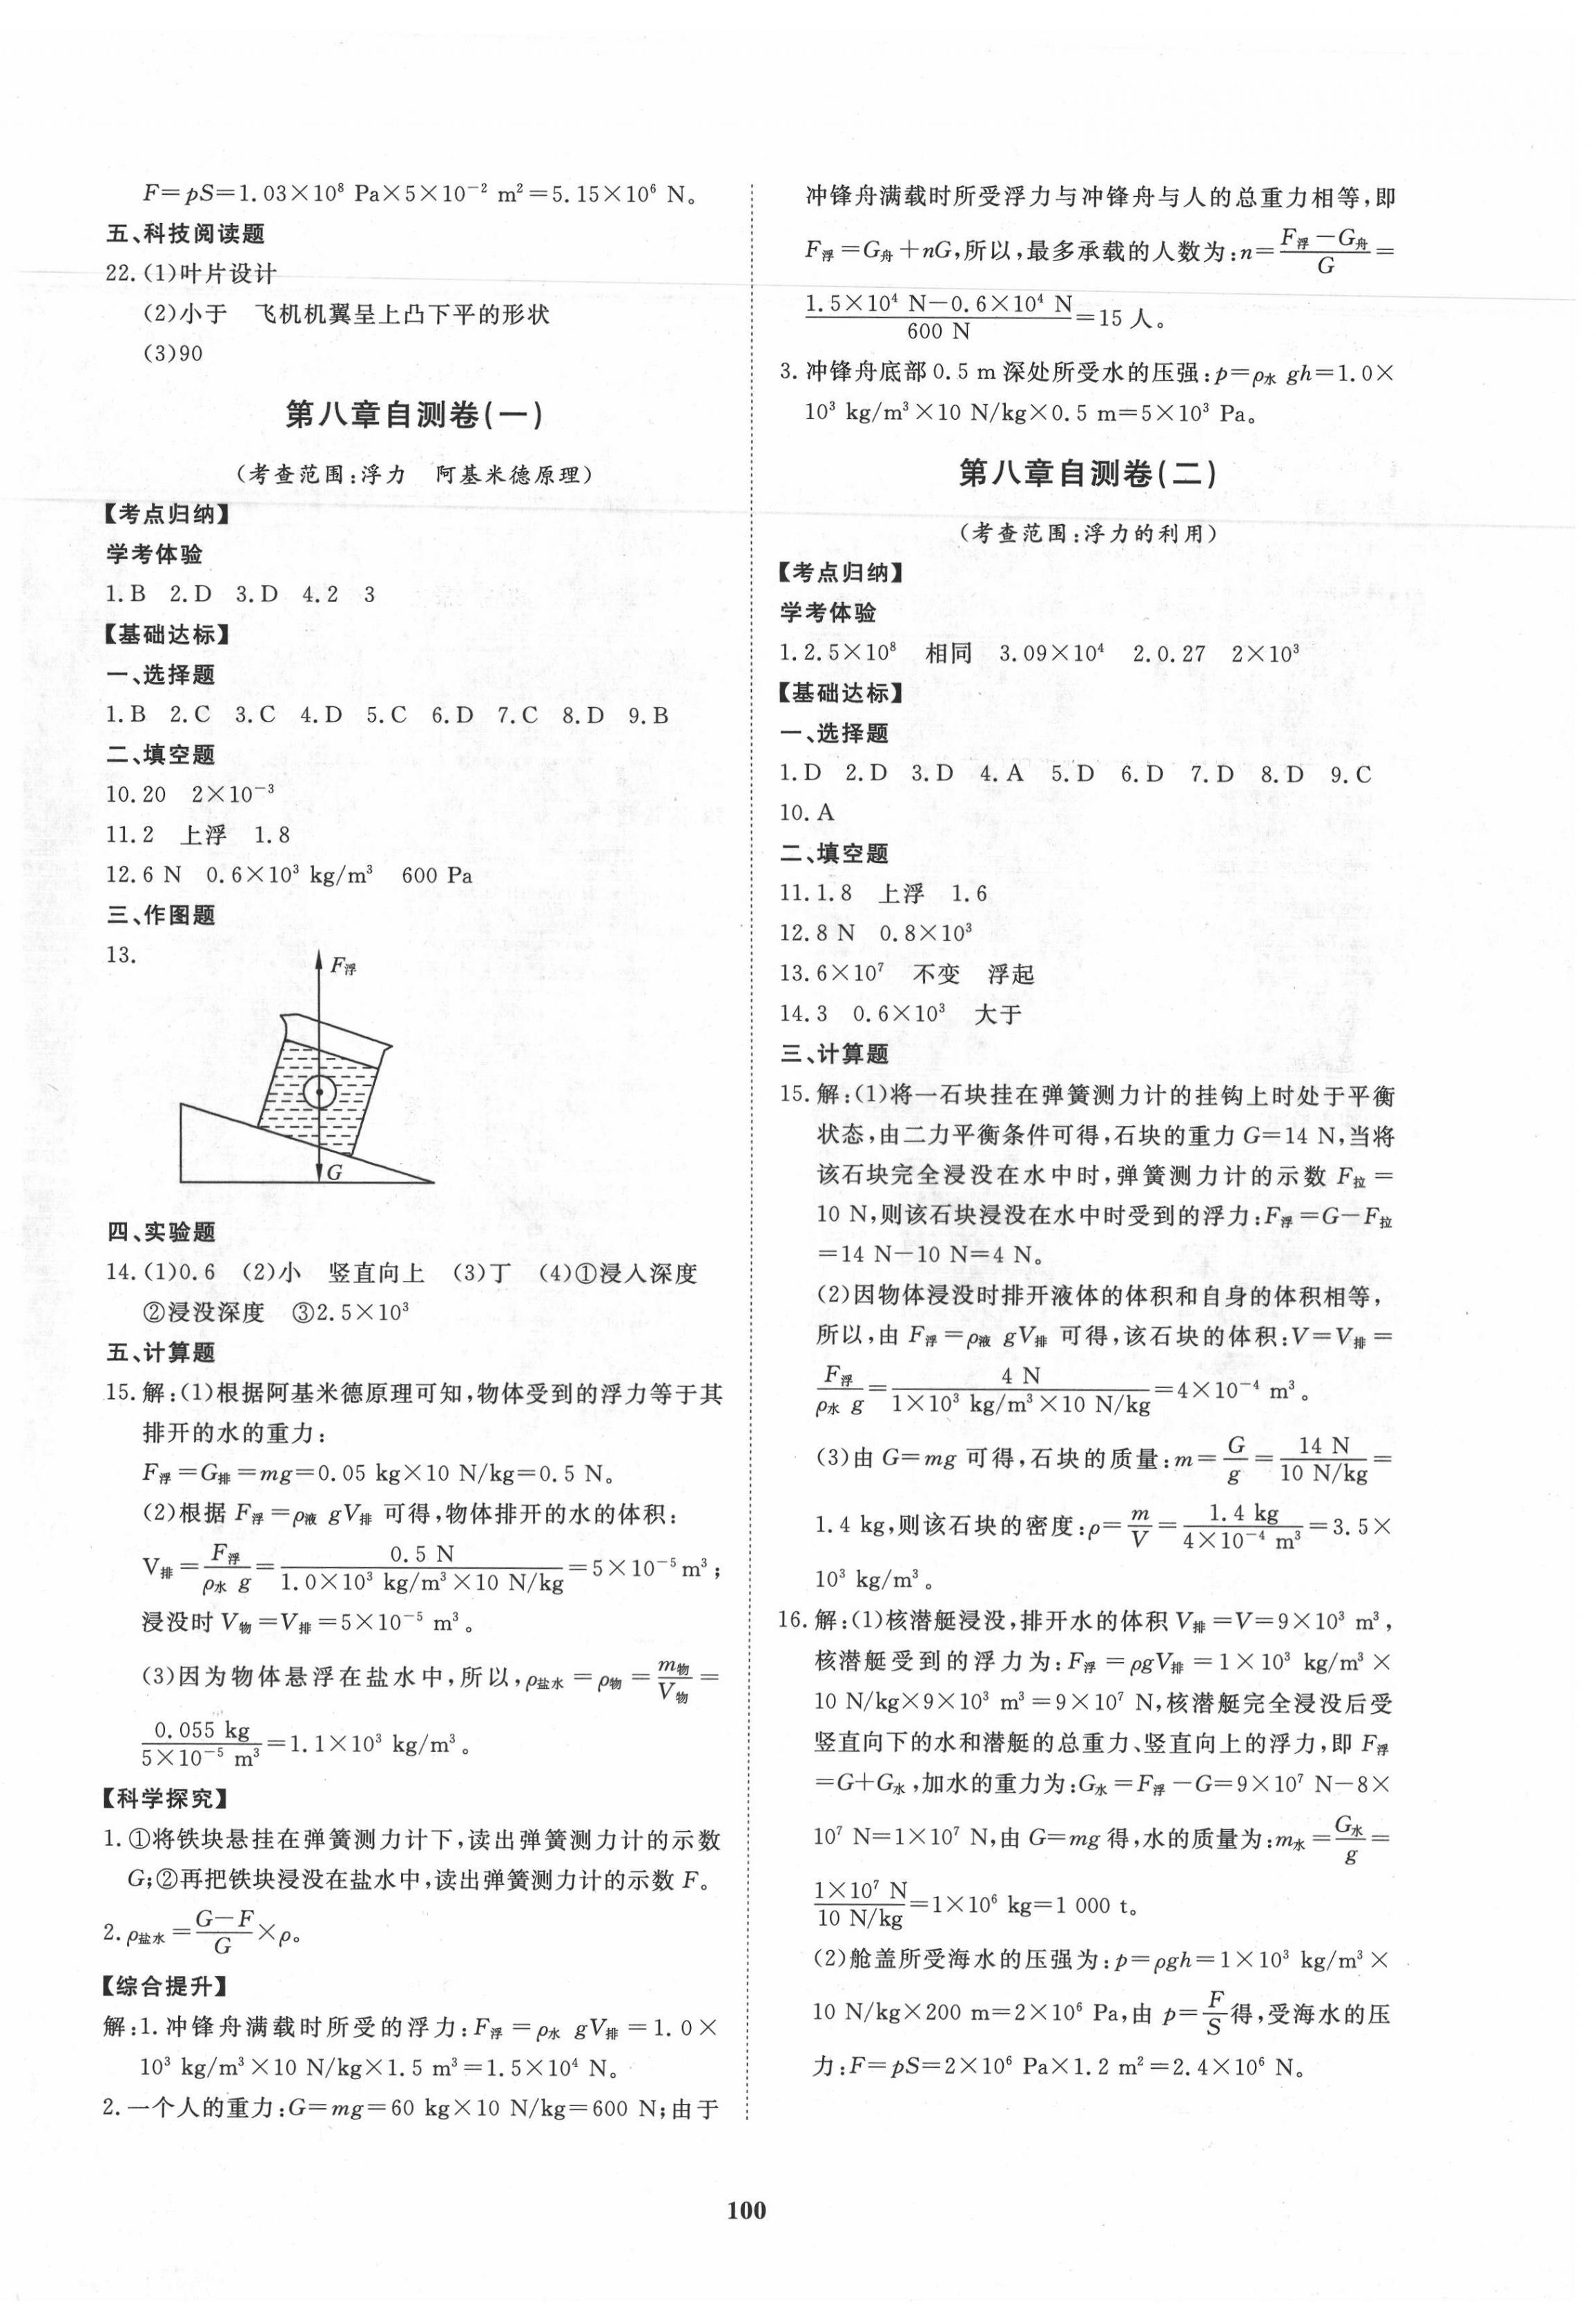 F=pS=1.03×10⁸ Pa×5×10⁻² m²=5.15×10⁶ N。
五、科技阅读题
22.(1)叶片设计
(2)小于　飞机机翼呈上凸下平的形状
(3)90
第八章自测卷(一)
(考查范围:浮力　阿基米德原理)
【考点归纳】
学考体验
1.B　2.D　3.D　4.2　3
【基础达标】
一、选择题
1.B　2.C　3.C　4.D　5.C　6.D　7.C　8.D　9.B
二、填空题
10.20　2×10⁻³
11.2　上浮　1.8
12.6 N　0.6×10³ kg/m³　600 Pa
三、作图题
13.
F浮
G
四、实验题
14.(1)0.6　(2)小　竖直向上　(3)丁　(4)①浸入深度
②浸没深度　③2.5×10³
五、计算题
15.解:(1)根据阿基米德原理可知,物体受到的浮力等于其
排开的水的重力:
F浮=G排=mg=0.05 kg×10 N/kg=0.5 N。
(2)根据 F浮=ρ液 gV排 可得,物体排开的水的体积:
V排=F浮/(ρ水 g)=0.5 N/(1.0×10³ kg/m³×10 N/kg)=5×10⁻⁵ m³;
浸没时 V物=V排=5×10⁻⁵ m³。
(3)因为物体悬浮在盐水中,所以,ρ盐水=ρ物=m物/V物=
0.055 kg/(5×10⁻⁵ m³)=1.1×10³ kg/m³。
【科学探究】
1.①将铁块悬挂在弹簧测力计下,读出弹簧测力计的示数
G;②再把铁块浸没在盐水中,读出弹簧测力计的示数 F。
2.ρ盐水=(G−F)/G×ρ。
【综合提升】
解:1.冲锋舟满载时所受的浮力:F浮=ρ水 gV排=1.0×
10³ kg/m³×10 N/kg×1.5 m³=1.5×10⁴ N。
2.一个人的重力:G=mg=60 kg×10 N/kg=600 N;由于
冲锋舟满载时所受浮力与冲锋舟与人的总重力相等,即
F浮=G舟+nG,所以,最多承载的人数为:n=(F浮−G舟)/G=
(1.5×10⁴ N−0.6×10⁴ N)/(600 N)=15 人。
3.冲锋舟底部0.5 m深处所受水的压强:p=ρ水 gh=1.0×
10³ kg/m³×10 N/kg×0.5 m=5×10³ Pa。
第八章自测卷(二)
(考查范围:浮力的利用)
【考点归纳】
学考体验
1.2.5×10⁸　相同　3.09×10⁴　2.0.27　2×10³
【基础达标】
一、选择题
1.D　2.D　3.D　4.A　5.D　6.D　7.D　8.D　9.C
10.A
二、填空题
11.1.8　上浮　1.6
12.8 N　0.8×10³
13.6×10⁷　不变　浮起
14.3　0.6×10³　大于
三、计算题
15.解:(1)将一石块挂在弹簧测力计的挂钩上时处于平衡
状态,由二力平衡条件可得,石块的重力 G=14 N,当将
该石块完全浸没在水中时,弹簧测力计的示数 F拉=
10 N,则该石块浸没在水中时受到的浮力:F浮=G−F拉
=14 N−10 N=4 N。
(2)因物体浸没时排开液体的体积和自身的体积相等,
所以,由 F浮=ρ液 gV排 可得,该石块的体积:V=V排=
F浮/(ρ水 g)=4 N/(1×10³ kg/m³×10 N/kg)=4×10⁻⁴ m³。
(3)由 G=mg 可得,石块的质量:m=G/g=14 N/(10 N/kg)=
1.4 kg,则该石块的密度:ρ=m/V=1.4 kg/(4×10⁻⁴ m³)=3.5×
10³ kg/m³。
16.解:(1)核潜艇浸没,排开水的体积 V排=V=9×10³ m³,
核潜艇受到的浮力为:F浮=ρgV排=1×10³ kg/m³×
10 N/kg×9×10³ m³=9×10⁷ N,核潜艇完全浸没后受
竖直向下的水和潜艇的总重力、竖直向上的浮力,即 F浮
=G+G水,加水的重力为:G水=F浮−G=9×10⁷ N−8×
10⁷ N=1×10⁷ N,由 G=mg 得,水的质量为:m水=G水/g=
1×10⁷ N/(10 N/kg)=1×10⁶ kg=1 000 t。
(2)舱盖所受海水的压强为:p=ρgh=1×10³ kg/m³×
10 N/kg×200 m=2×10⁶ Pa,由 p=F/S得,受海水的压
力:F=pS=2×10⁶ Pa×1.2 m²=2.4×10⁶ N。
100